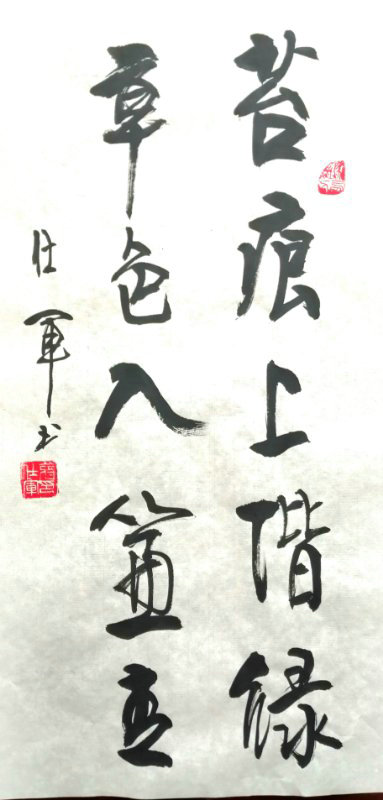 苔痕上階緑
草色入簾青
仕軍书